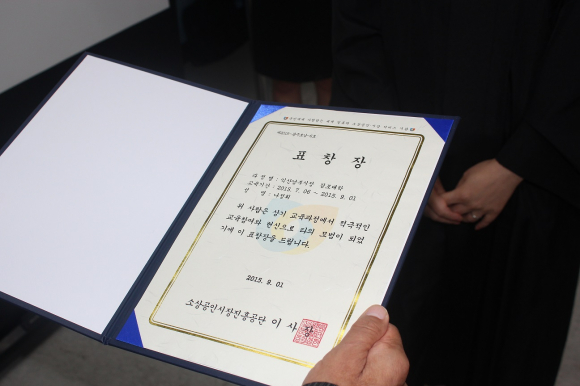 표 창 장
과 정 명 :
교육기간 : 2015. 7. 06 ~ 2015. 9. 01
성 명 :
위 사람은 상기 교육과정에서 적극적인
교육참여와 헌신으로 타의 모범이 되었
기에 이 표창장을 드립니다.
2015. 9. 01
소상공인시장진흥공단 이 사 장